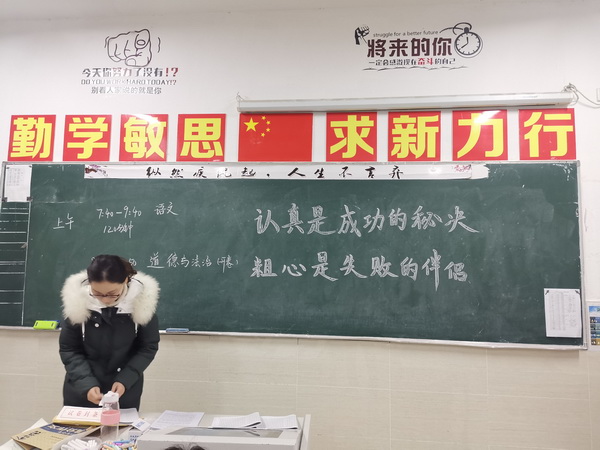 今天你努力了没有!?
DO YOU WORK HARD TODAY!?
别看人家说的就是你
struggle for a better future
将来的你
一定会感谢现在奋斗的自己
勤学敏思 求新力行
纵然疾风起，人生不言弃
上午 7:40-9:40 语文
120分钟
道德与法治(开卷)
认真是成功的秘决
粗心是失败的伴侣